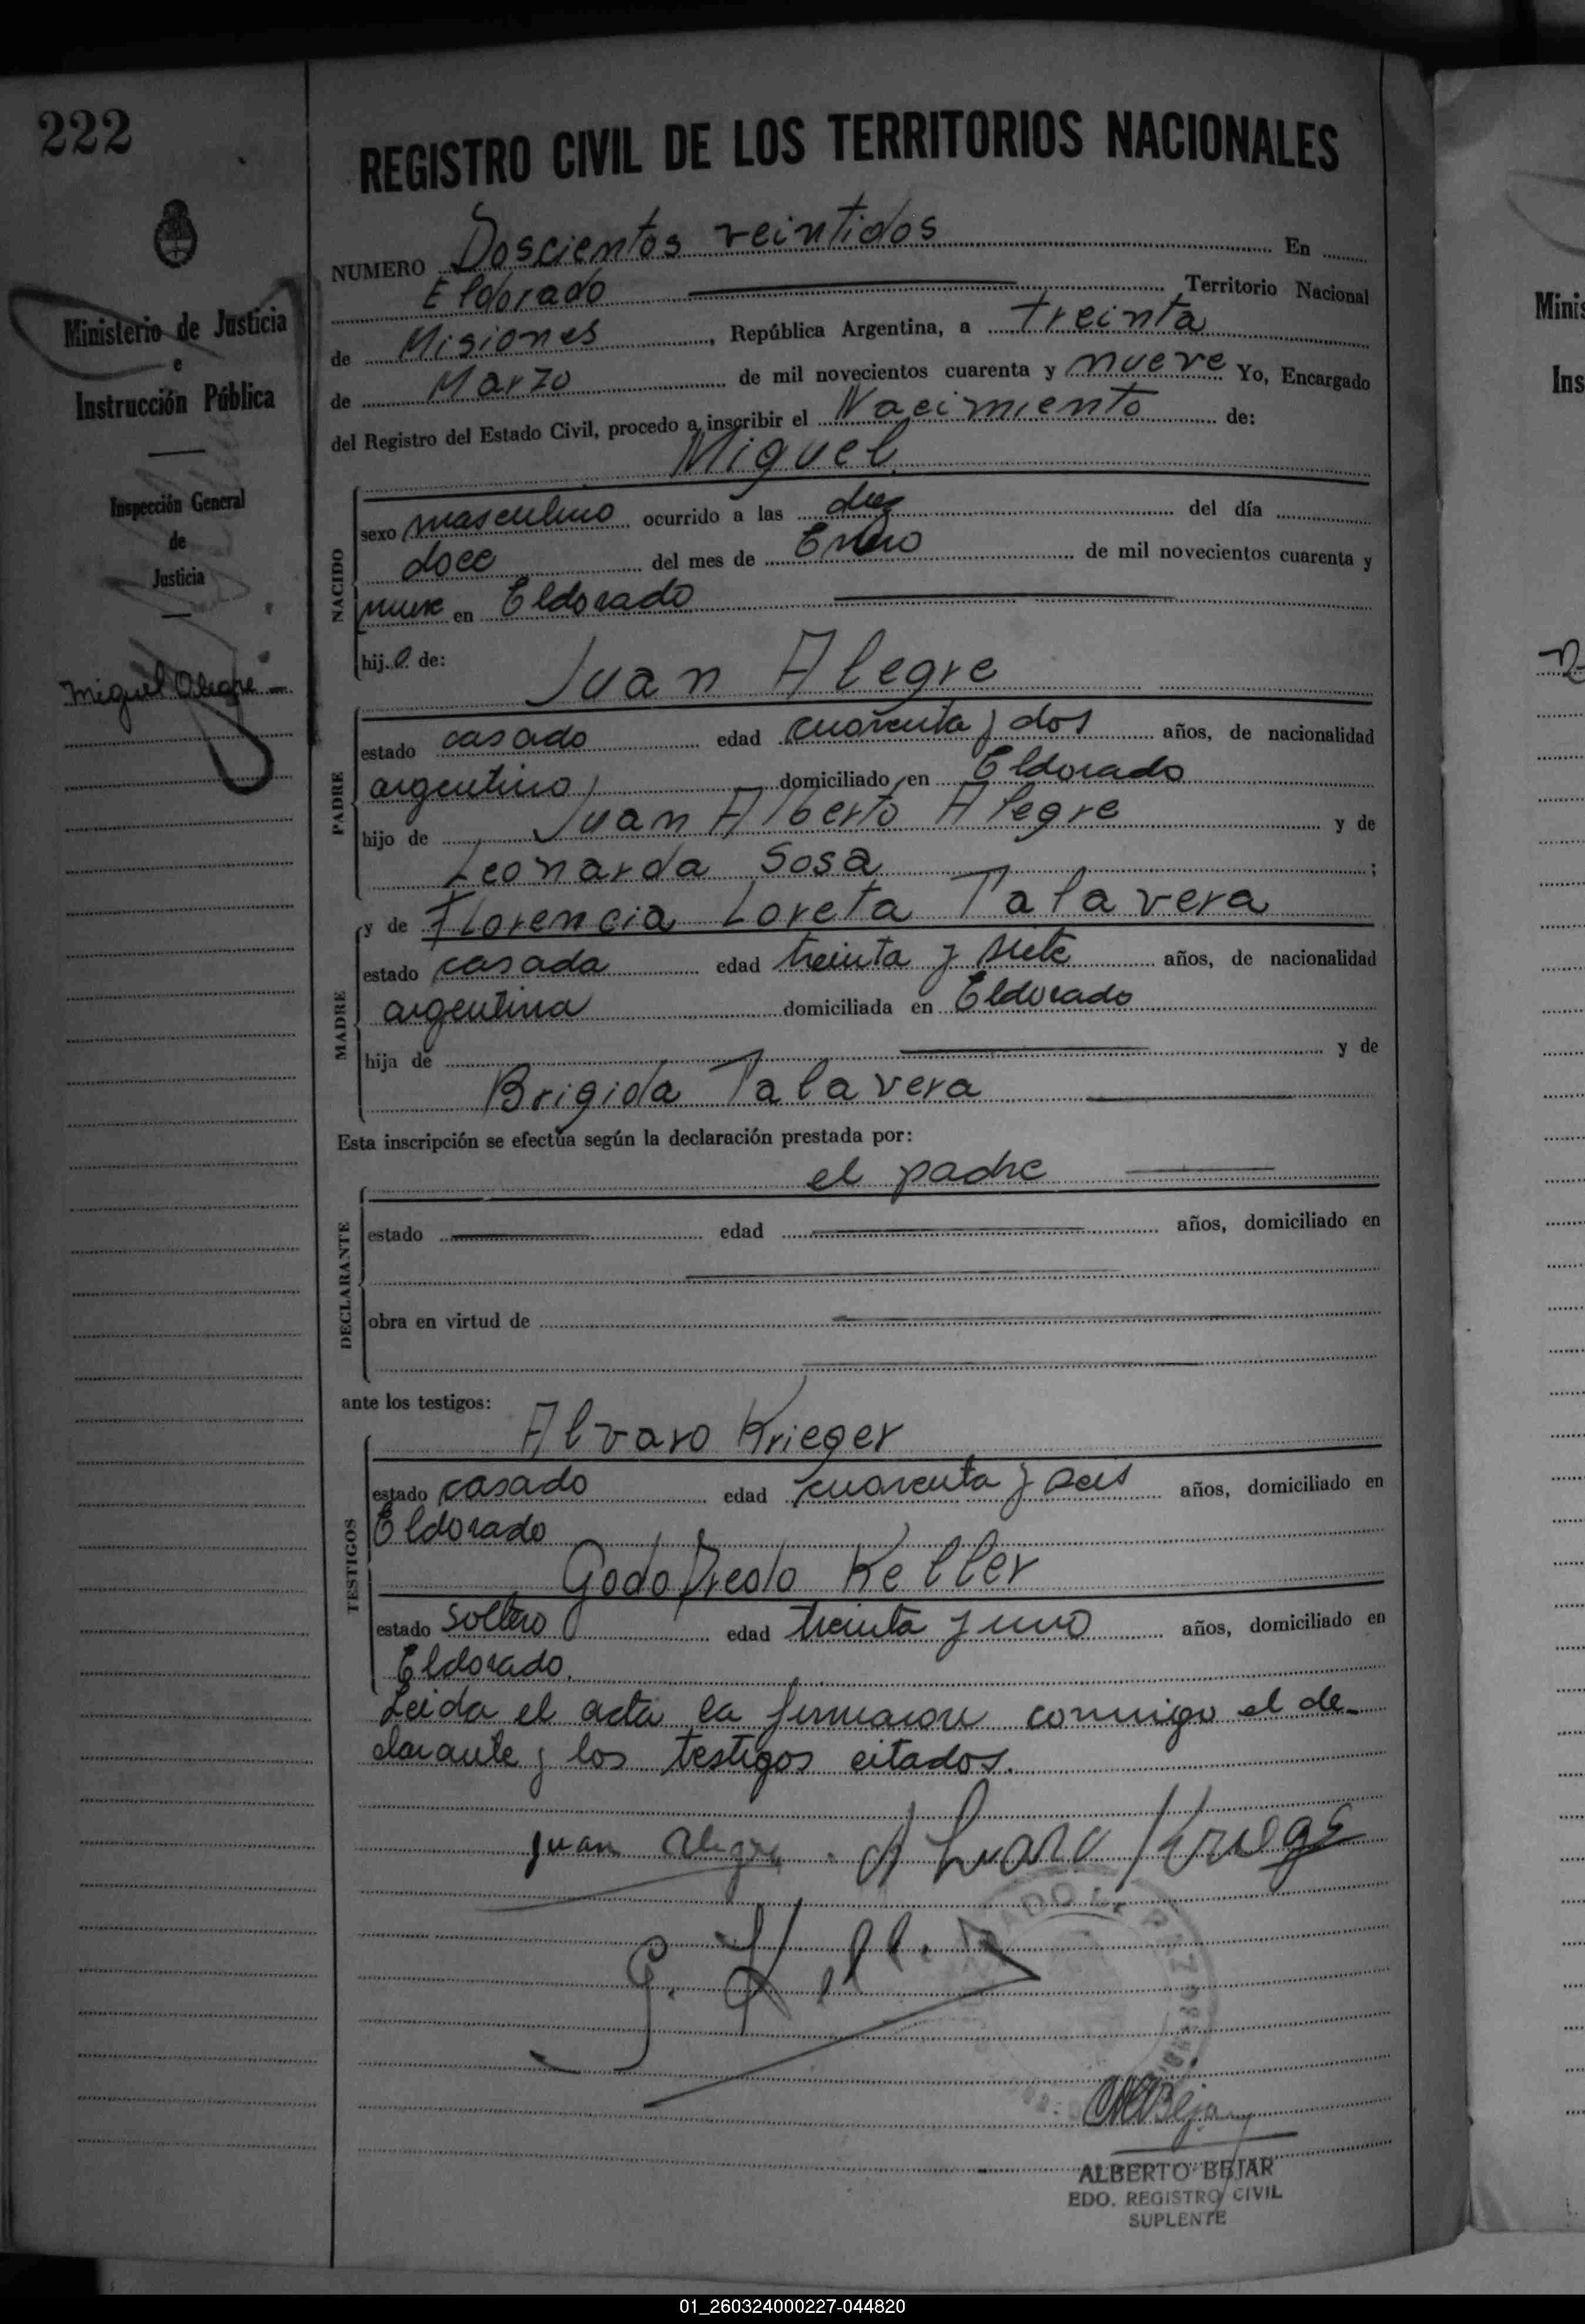 222
REGISTRO CIVIL DE LOS TERRITORIOS NACIONALES
Ministerio de Justicia
e
Instrucción Pública
Inspección General
de
Justicia
Miguel Alegre
NUMERO Doscientos veintidos En
Eldorado Territorio Nacional
de Misiones, República Argentina, a treinta
de Marzo de mil novecientos cuarenta y nueve Yo, Encargado
del Registro del Estado Civil, procedo a inscribir el Nacimiento de:
Miguel
NACIDO
sexo masculino ocurrido a las diez del día
doce del mes de Enero de mil novecientos cuarenta y
nueve en Eldorado
hijo de: Juan Alegre
PADRE
estado casado edad cuarenta y dos años, de nacionalidad
argentino domiciliado en Eldorado
hijo de Juan Alberto Alegre y de
Leonarda Sosa ;
y de Florencia Loreta Talavera
MADRE
estado casada edad treinta y siete años, de nacionalidad
argentina domiciliada en Eldorado
hija de y de
Brigida Talavera
Esta inscripción se efectúa según la declaración prestada por:
el padre
DECLARANTE
estado edad años, domiciliado en
obra en virtud de
ante los testigos:
Alvaro Krieger
TESTIGOS
estado casado edad cuarenta y seis años, domiciliado en
Eldorado
Godofredo Keller
estado soltero edad treinta y uno años, domiciliado en
Eldorado.
Leida el acta la firmaron conmigo el de-
clarante y los testigos citados.
Juan Alegre
G. Keller
ALBERTO BEJAR
EDO. REGISTRO CIVIL
SUPLENTE
Minis
Ins
01_260324000227-044820